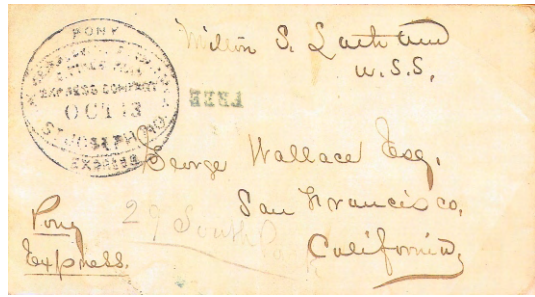 PONY
EXPRESS COMPANY
OCT 13
ST JOSEPH MO.
EXPRESS
FREE
Milton S. Latham
U.S.S.
George Wallace Esq.
San Francisco,
California,
29 South Park
Pony
Express.